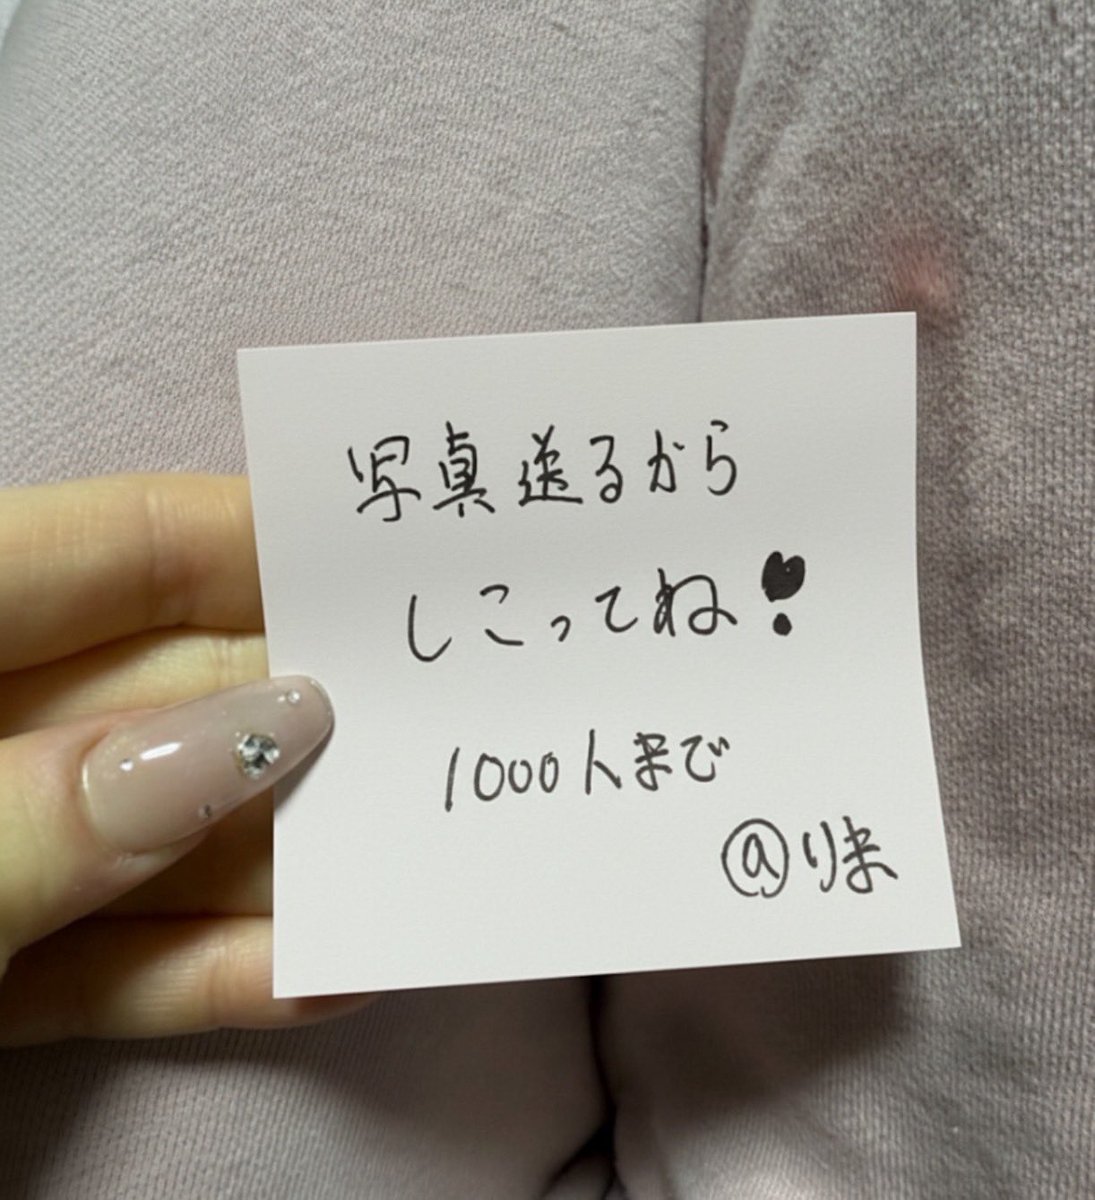 写真送るから
しこってね❣
1000人まで
@りま